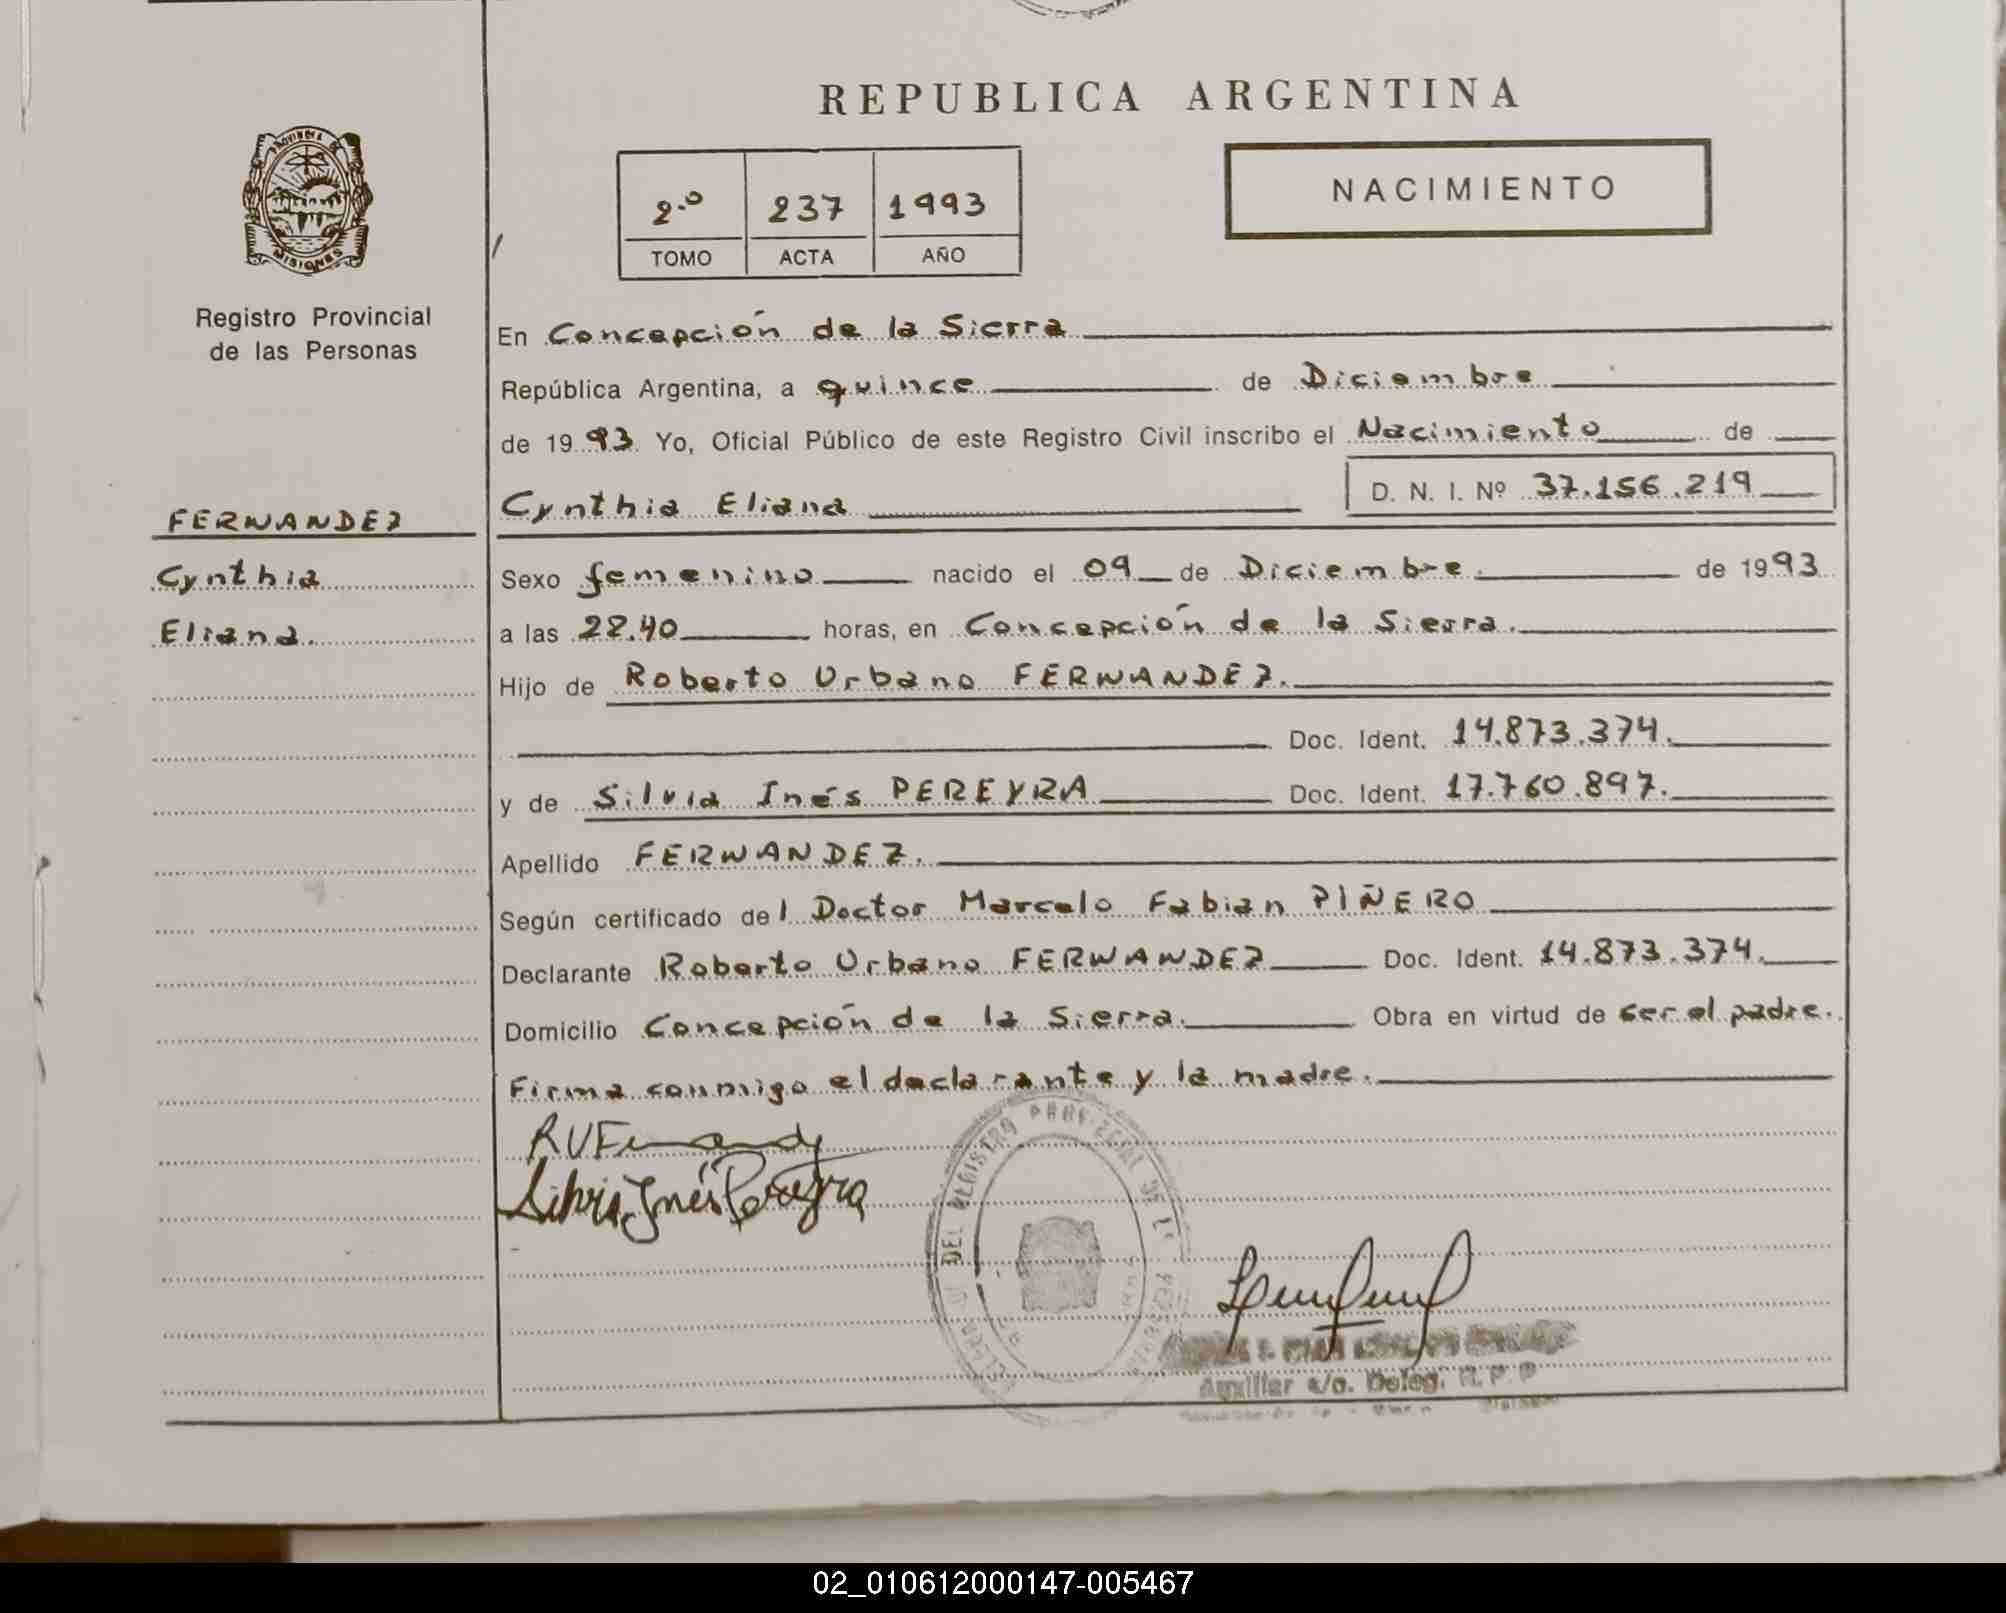 REPUBLICA ARGENTINA
PROVINCIA DE
MISIONES
Registro Provincial
de las Personas
NACIMIENTO
2.º 237 1993
TOMO ACTA AÑO
En Concepción de la Sierra
República Argentina, a quince de Diciembre
de 1993 Yo, Oficial Público de este Registro Civil inscribo el Nacimiento de
Cynthia Eliana D. N. I. Nº 37.156.219
FERNANDEZ
Cynthia
Eliana.
Sexo femenino nacido el 09 de Diciembre de 1993
a las 22.40 horas, en Concepción de la Sierra.
Hijo de Roberto Urbano FERNANDEZ.
Doc. Ident. 14.873.374.
y de Silvia Inés PEREYRA Doc. Ident. 17.760.897.
Apellido FERNANDEZ.
Según certificado del Doctor Marcelo Fabian PIÑERO
Declarante Roberto Urbano FERNANDEZ Doc. Ident. 14.873.374.
Domicilio Concepción de la Sierra. Obra en virtud de ser el padre.
Firma conmigo el declarante y la madre.
Silvia Inés Pereyra
DEL REGISTRO PROVINCIAL DE
Auxiliar a/c. Deleg. R. P. P
02_010612000147-005467